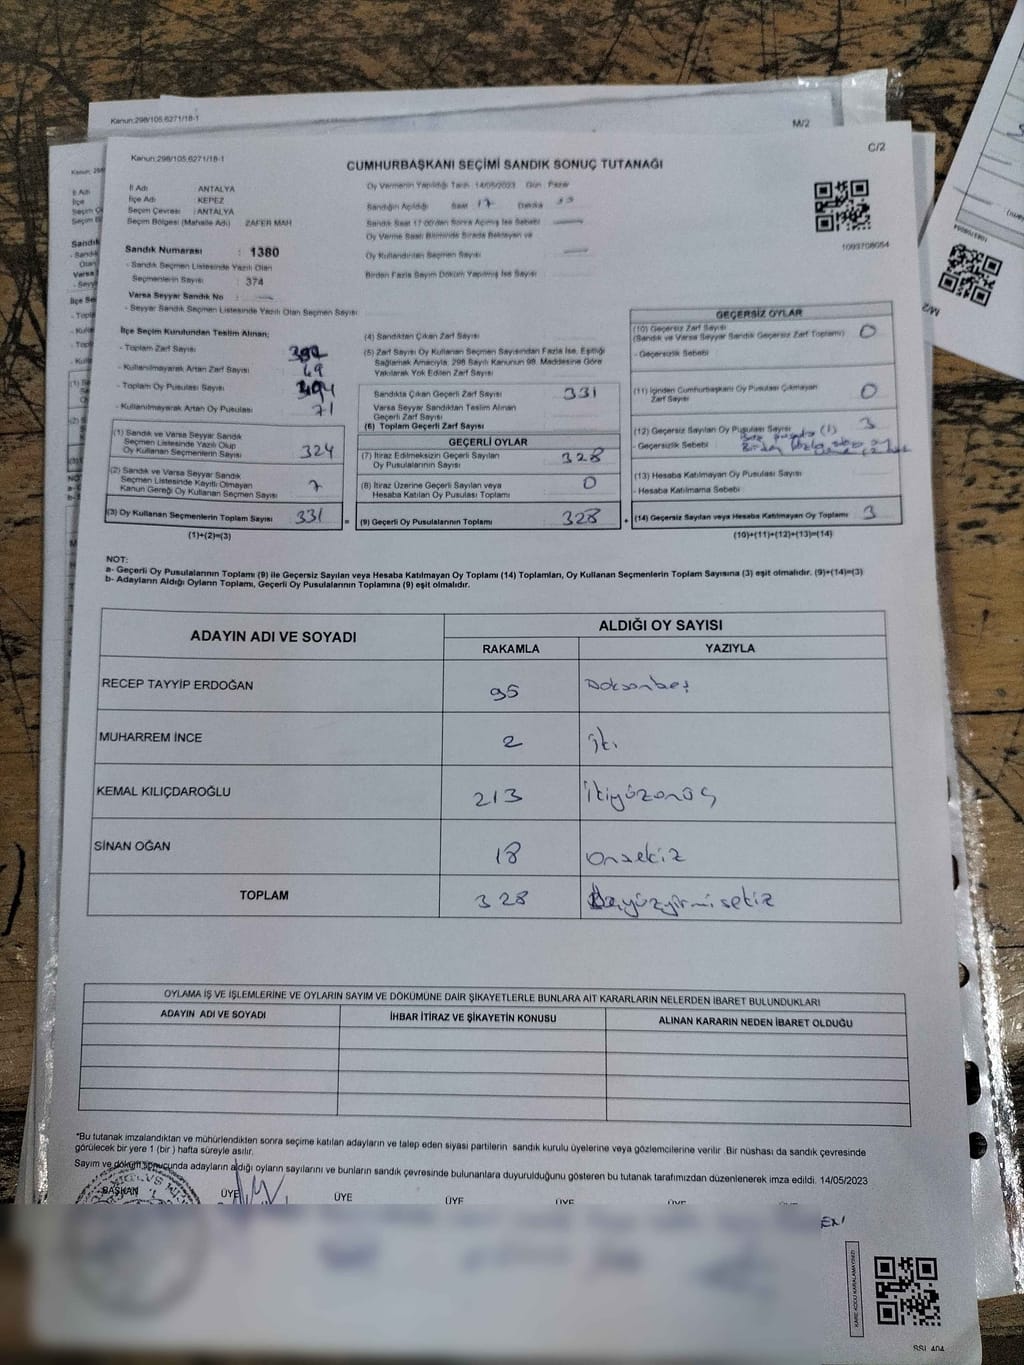 Kanun:298/105,6271/18-1
M/2
Kanun:298/105,6271/18-1
C/2
CUMHURBAŞKANI SEÇİMİ SANDIK SONUÇ TUTANAĞI
İl Adı : ANTALYA
İlçe Adı : KEPEZ
Seçim Çevresi : ANTALYA
Seçim Bölgesi (Mahalle Adı) ZAFER MAH
Oy Vermenin Yapıldığı Tarih 14/05/2023 Gün : Pazar
Sandığın Açıldığı Saat 17 Dakika
Sandık Saat 17:00'den Sonra Açılmış İse Sebebi
Oy Verme Saati Bitiminde Sırada Bekleyen ve
Oy Kullandırılan Seçmen Sayısı
Birden Fazla Sayım Döküm Yapılmış İse Sayısı
1093708054
Sandık Numarası : 1380
- Sandık Seçmen Listesinde Yazılı Olan
Seçmenlerin Sayısı : 374
Varsa Seyyar Sandık No :
- Seyyar Sandık Seçmen Listesinde Yazılı Olan Seçmen Sayısı
İlçe Seçim Kurulundan Teslim Alınan;
- Toplam Zarf Sayısı
- Kullanılmayarak Artan Zarf Sayısı 69
- Toplam Oy Pusulası Sayısı
- Kullanılmayarak Artan Oy Pusulası 71
(1) Sandık ve Varsa Seyyar Sandık
Seçmen Listesinde Yazılı Olup
Oy Kullanan Seçmenlerin Sayısı 324
(2) Sandık ve Varsa Seyyar Sandık
Seçmen Listesinde Kayıtlı Olmayan
Kanun Gereği Oy Kullanan Seçmen Sayısı 7
(3) Oy Kullanan Seçmenlerin Toplam Sayısı 331 =
(1)+(2)=(3)
(4) Sandıktan Çıkan Zarf Sayısı
(5) Zarf Sayısı Oy Kullanan Seçmen Sayısından Fazla İse, Eşitliği
Sağlamak Amacıyla, 298 Sayılı Kanunun 98. Maddesine Göre
Yakılarak Yok Edilen Zarf Sayısı
Sandıkta Çıkan Geçerli Zarf Sayısı 331
Varsa Seyyar Sandıktan Teslim Alınan
Geçerli Zarf Sayısı
(6) Toplam Geçerli Zarf Sayısı
GEÇERLİ OYLAR
(7) İtiraz Edilmeksizin Geçerli Sayılan
Oy Pusulalarının Sayısı 328
(8) İtiraz Üzerine Geçerli Sayılan veya
Hesaba Katılan Oy Pusulası Toplamı 0
(9) Geçerli Oy Pusulalarının Toplamı 328 +
GEÇERSİZ OYLAR
(10) Geçersiz Zarf Sayısı
(Sandık ve Varsa Seyyar Sandık Geçersiz Zarf Toplamı) 0
- Geçersizlik Sebebi
(11) İçinden Cumhurbaşkanı Oy Pusulası Çıkmayan
Zarf Sayısı 0
(12) Geçersiz Sayılan Oy Pusulası Sayısı 3
- Geçersizlik Sebebi
(13) Hesaba Katılmayan Oy Pusulası Sayısı
- Hesaba Katılmama Sebebi
(14) Geçersiz Sayılan veya Hesaba Katılmayan Oy Toplamı 3
(10)+(11)+(12)+(13)=(14)
NOT:
a- Geçerli Oy Pusulalarının Toplamı (9) ile Geçersiz Sayılan veya Hesaba Katılmayan Oy Toplamı (14) Toplamları, Oy Kullanan Seçmenlerin Toplam Sayısına (3) eşit olmalıdır. (9)+(14)=(3)
b- Adayların Aldığı Oyların Toplamı, Geçerli Oy Pusulalarının Toplamına (9) eşit olmalıdır.
ADAYIN ADI VE SOYADI
ALDIĞI OY SAYISI
RAKAMLA YAZIYLA
RECEP TAYYİP ERDOĞAN 95 Doksanbeş
MUHARREM İNCE 2 İki
KEMAL KILIÇDAROĞLU 213 İkiyüzonüç
SİNAN OĞAN 18 Onsekiz
TOPLAM 328 Üçyüzyirmisekiz
OYLAMA İŞ VE İŞLEMLERİNE VE OYLARIN SAYIM VE DÖKÜMÜNE DAİR ŞİKAYETLERLE BUNLARA AİT KARARLARIN NELERDEN İBARET BULUNDUKLARI
ADAYIN ADI VE SOYADI İHBAR İTİRAZ VE ŞİKAYETİN KONUSU ALINAN KARARIN NEDEN İBARET OLDUĞU
*Bu tutanak imzalandıktan ve mühürlendikten sonra seçime katılan adayların ve talep eden siyasi partilerin sandık kurulu üyelerine veya gözlemcilerine verilir. Bir nüshası da sandık çevresinde
görülecek bir yere 1 (bir) hafta süreyle asılır.
Sayım ve döküm sonucunda adayların aldığı oyların sayılarını ve bunların sandık çevresinde bulunanlara duyurulduğunu gösteren bu tutanak tarafımızdan düzenlenerek imza edildi. 14/05/2023
BAŞKAN ÜYE ÜYE ÜYE ÜYE ÜYE
KARE KODU KARALAMAYINIZ!